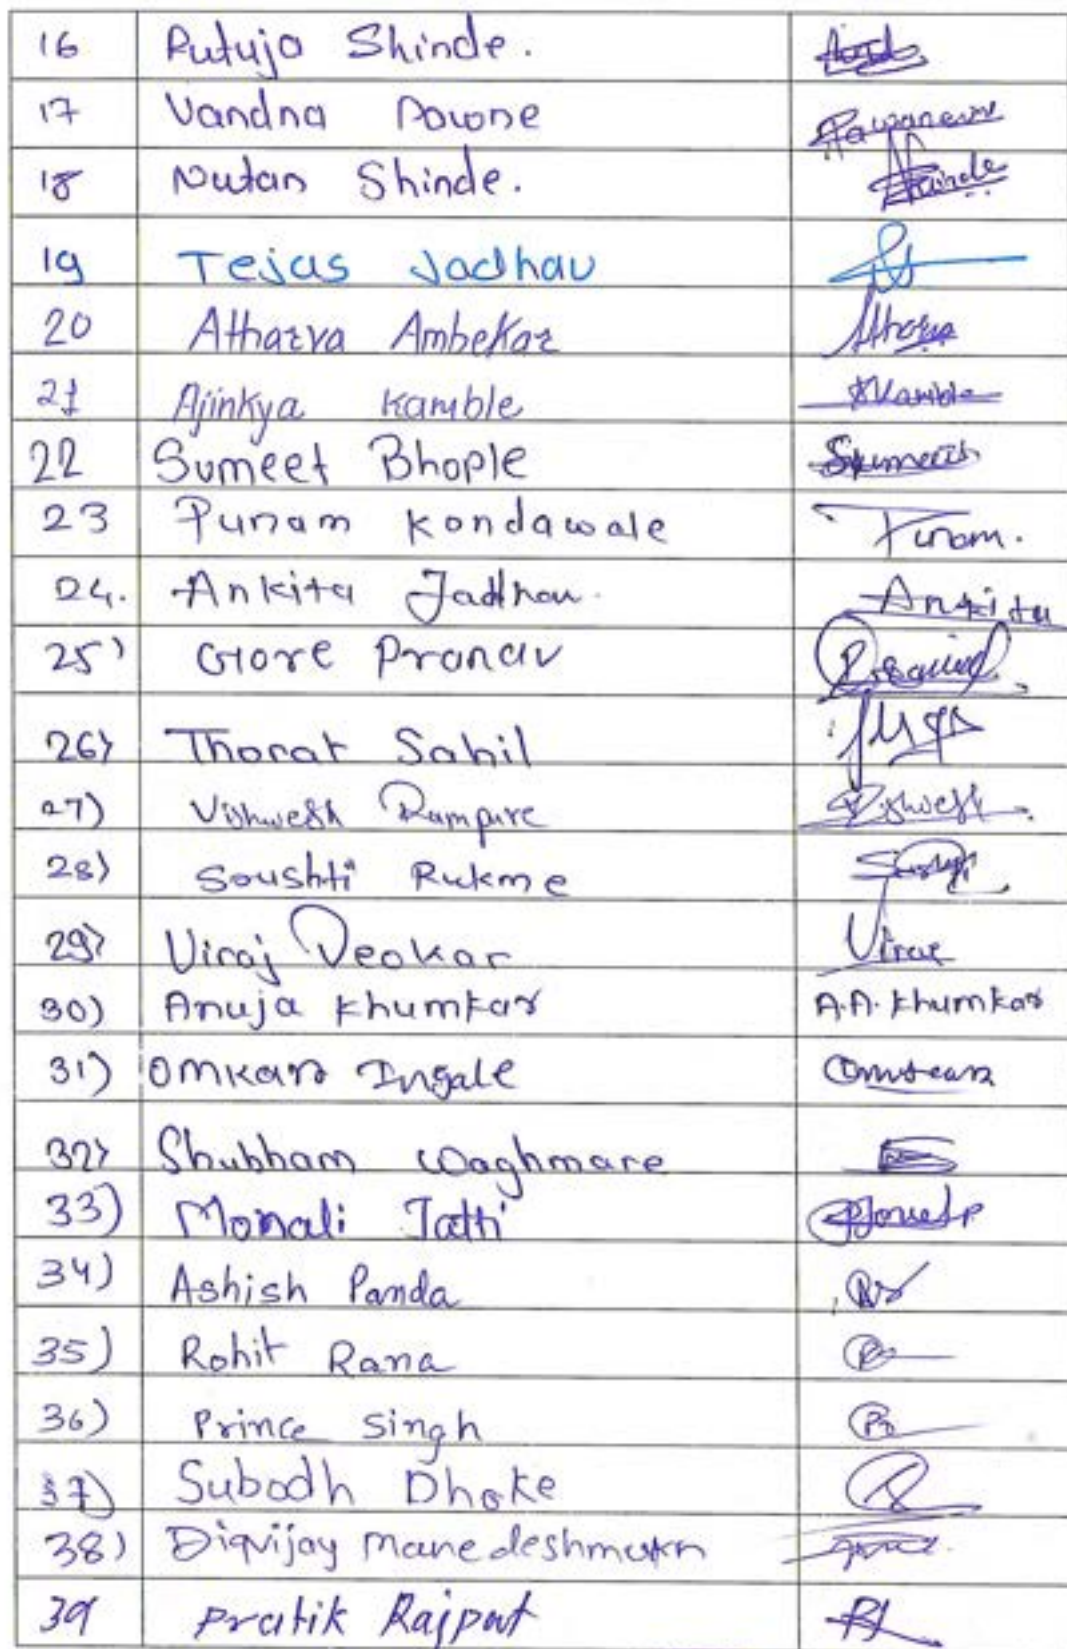 16 Rutuja Shinde.
17 Vandna Pawane Pawanevr
18 Nutan Shinde. Shinde
19 Tejas Jadhav
20 Atharva Ambekar Atharva
21 Ajinkya Kamble AKamble
22 Sumeet Bhople Sumeet
23 Punam Kondawale Punam.
24. Ankita Jadhav. Ankita
25) Gore Pranav
26) Thorat Sahil
27) Vishwesh Rampure Vishwesh
28) Soushti Rukme
29) Viraj Deokar Viraj
30) Anuja Khumkar A.A. Khumkar
31) Omkar Ingale Omkar
32) Shubham Waghmare
33) Monali Jatti
34) Ashish Panda
35) Rohit Rana
36) Prince Singh
37) Subodh Dhoke
38) Digvijay Manedeshmukh
39 Pratik Rajput